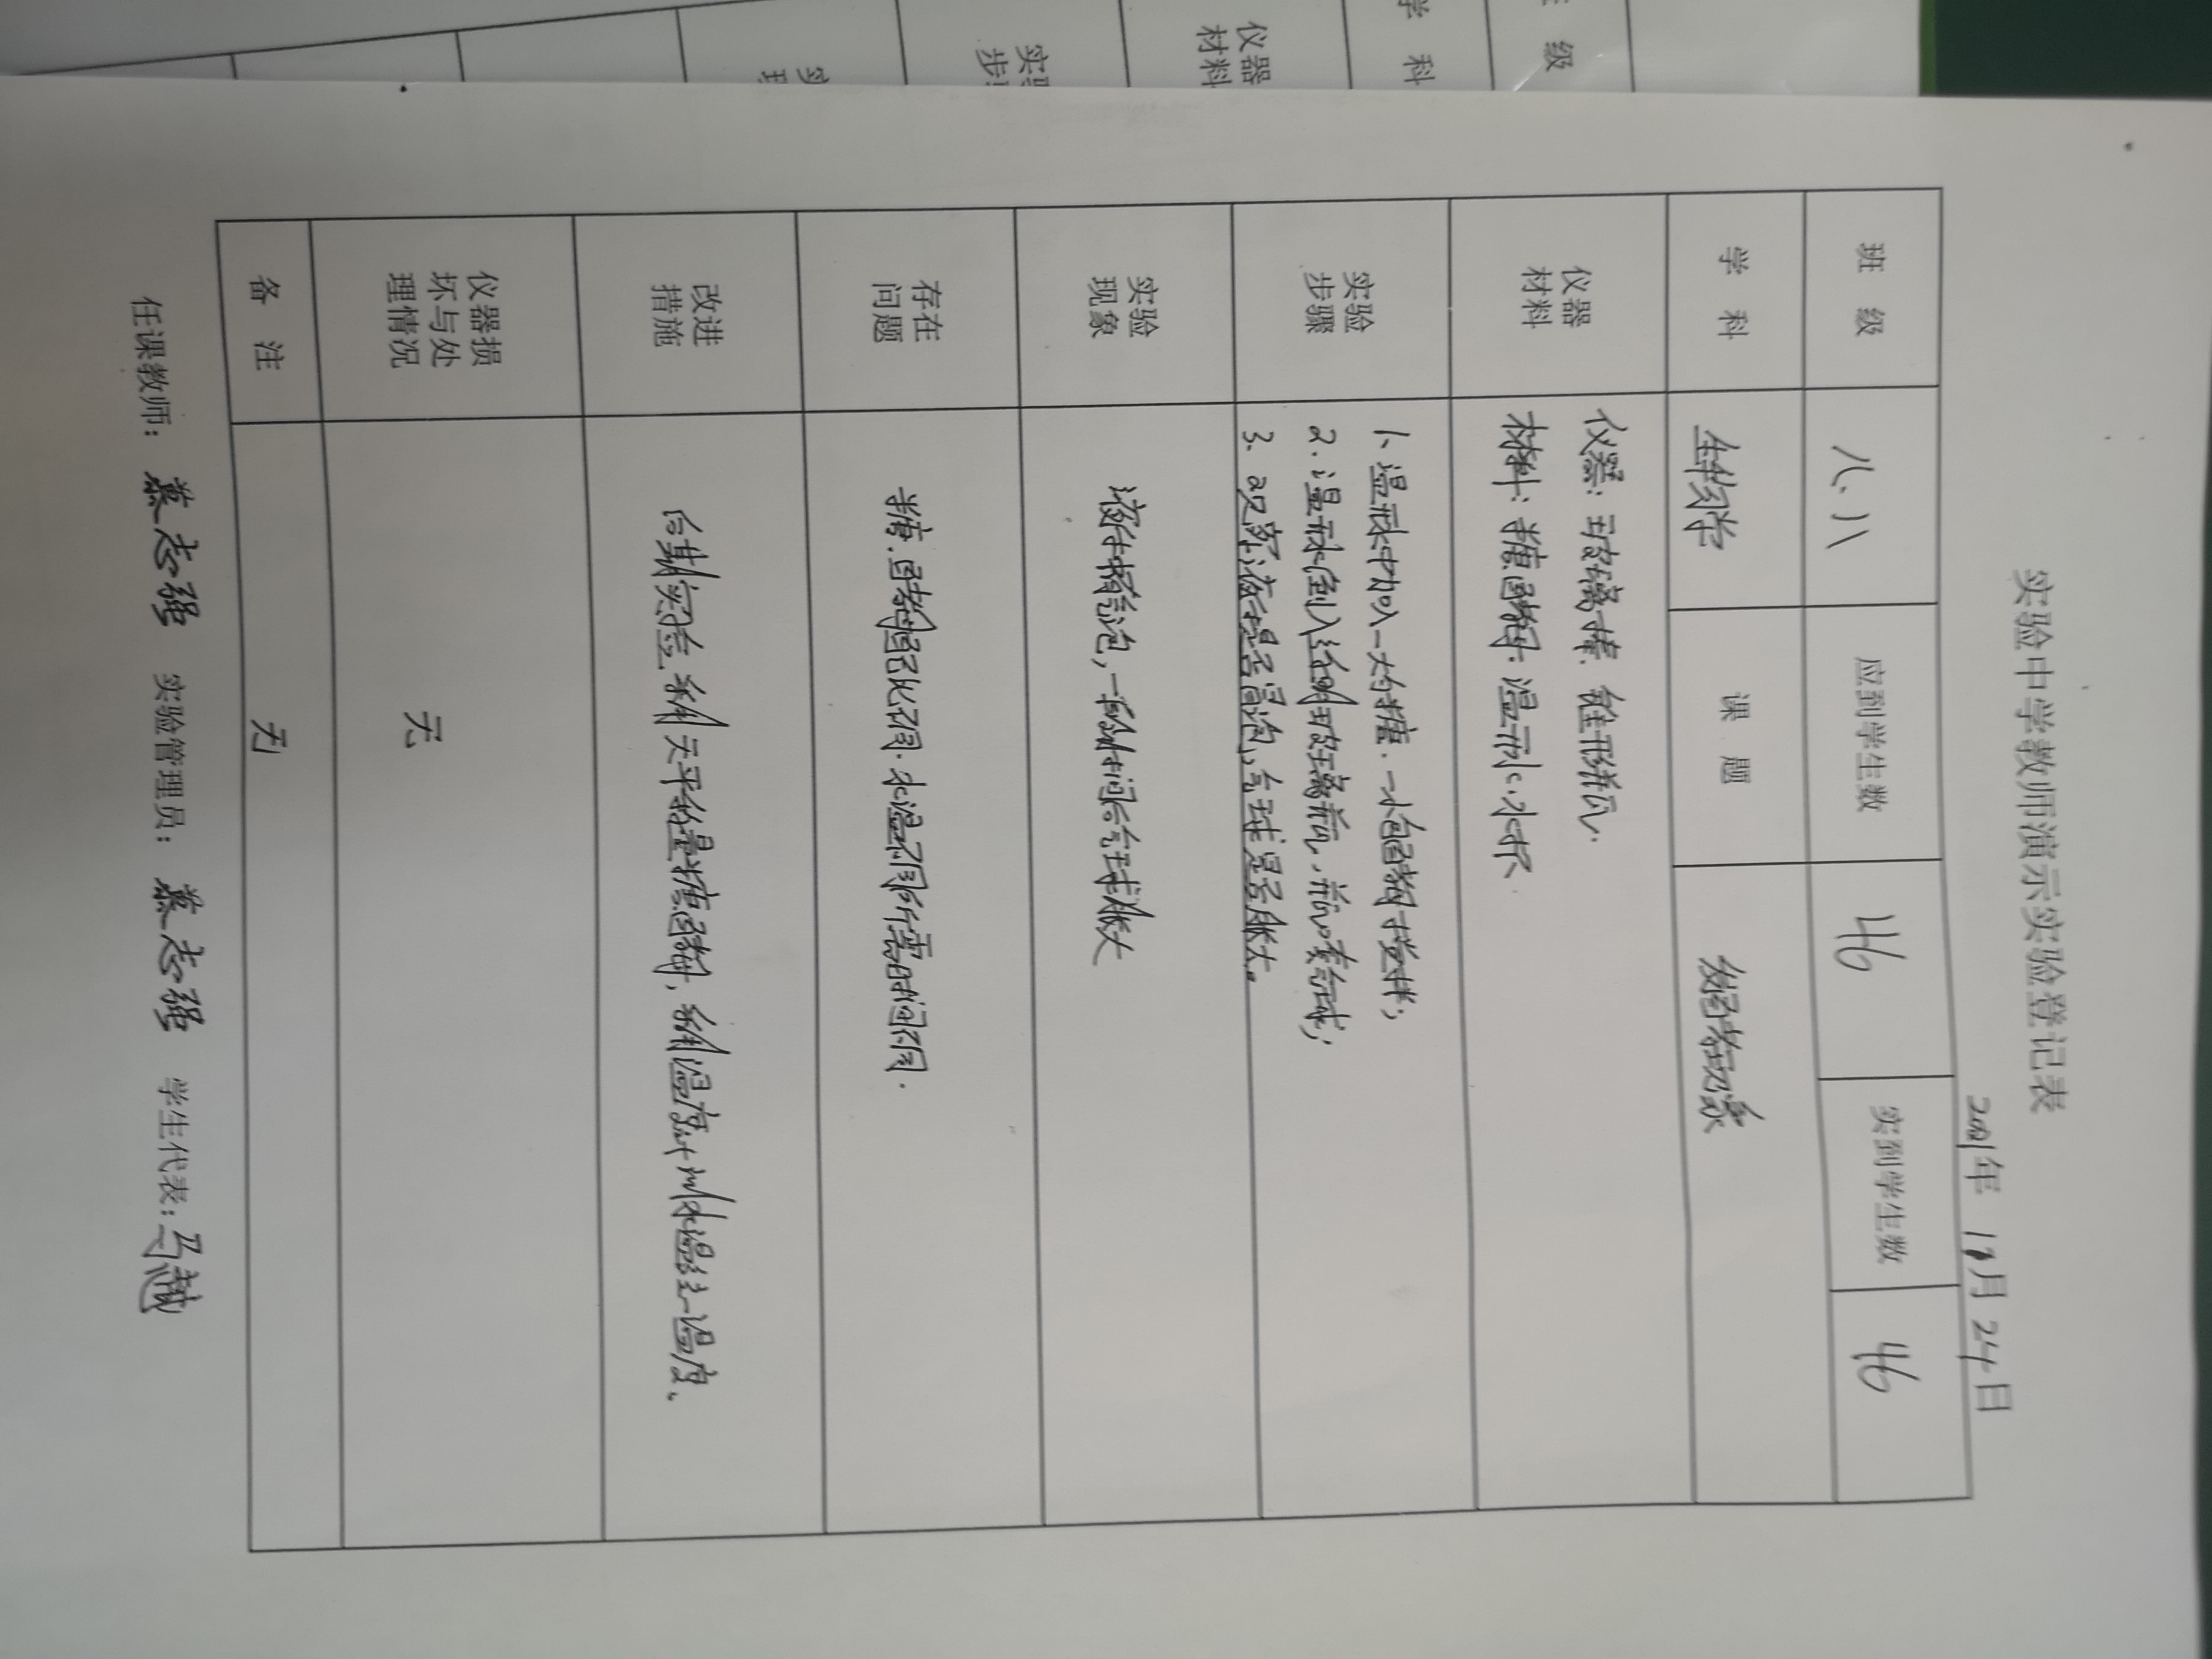 实验中学教师演示实验登记表
2021年 12月 24日
班 级 八、八 应到学生数 46 实到学生数 46
学 科 生物学 课 题 发酵现象
仪器
材料
仪器：玻璃棒．锥形瓶．
材料：糖．酵母．温开水．水杯
实验
步骤
1、温开水中加入一大勺糖．一小包酵母搅拌；
2．温开水倒入透明玻璃瓶，瓶口套气球；
3．观察液体是否冒泡，气球是否胀大。
实验
现象
液体中有气泡，一段时间后气球胀大
存在
问题
糖．酵母配比不同．水温不同所需时间不同．
改进
措施
实验 利用天平称量糖 酵母，利用温度计测水温统一温度．
仪器损
坏与处
理情况
无
备 注 无
任课教师： 慕志强 实验管理员： 慕志强 学生代表：马
学 科
级
仪器
材料